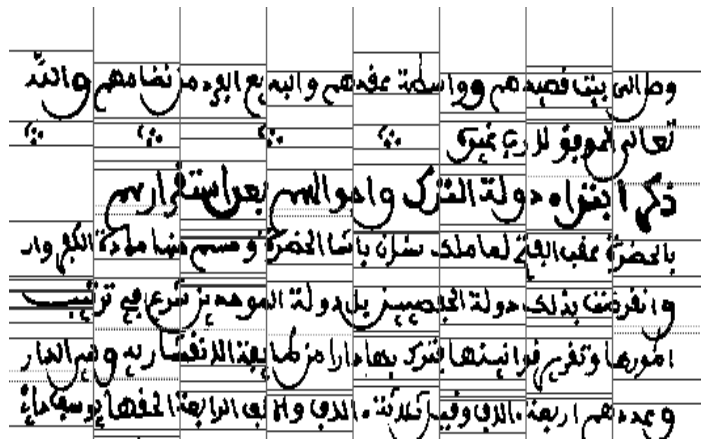 بيت قصيدهم وواسطة عقدهم والبديع من نظامهم والله
تعالى الموفق لا رب غيره
ذكر ابتداء دولة الترك واحوالهم بعد استقرارهم
بالحضرة عقب الفتح لما ملك سنان باشا الحضرة وحسم منها مادة الكفر
وانقرضت بذلك دولة الحفصيين بل دولة الموحدين شرع في ترتيب
امورها وتقرير قوانينها فترك بها دارا من طايفة الانقشارية الدار
وعددهم اربعة ءالاف وقيل ثلاثة ءالاف الرابعة